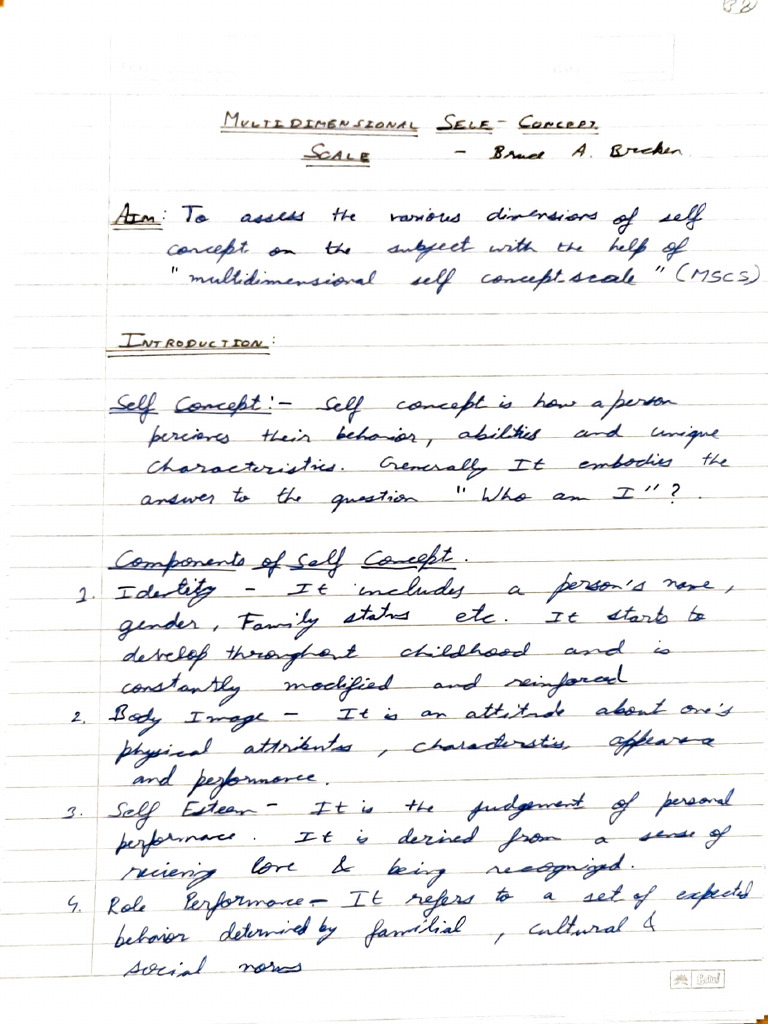 MULTIDIMENSIONAL SELF-CONCEPT
SCALE - Bruce A. Bracken
AIM: To assess the various dimensions of self
concept on the subject with the help of
"multidimensional self concept-scale" (MSCS)
INTRODUCTION:
Self Concept:- Self concept is how a person
percieves their behavior, abilities and unique
characteristics. Generally It embodies the
answer to the question "Who am I"?.
Components of Self Concept.
1. Identity - It includes a person's name,
gender, Family status etc. It starts to
develop throughout childhood and is
constantly modified and reinforced
2. Body Image - It is an attitude about one's
physical attributes, characteristics, appearance
and performance.
3. Self Esteem - It is the judgement of personal
performace. It is derived from a sense of
recieving love & being recognized.
4. Role Performance - It refers to a set of expected
behavior determined by familial, cultural &
social norms